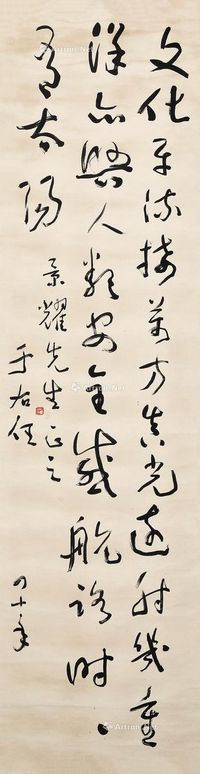 文化流接萬方真光遠射幾重
洋人類安全感航路時、
太陽
景耀先生正之
于右任
四十年